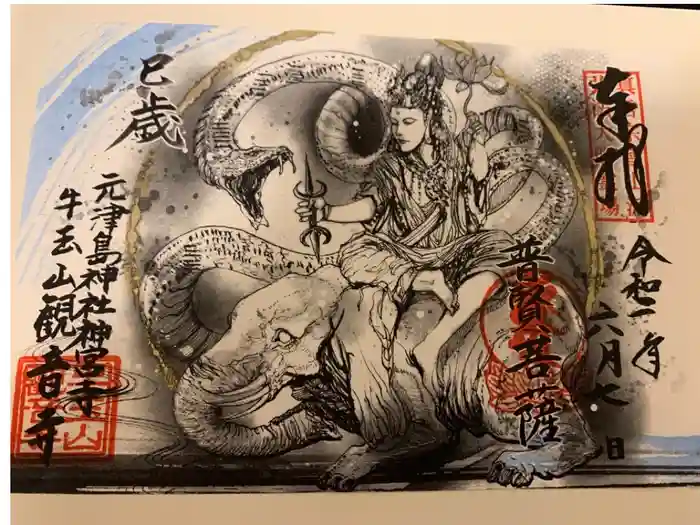 奉拝
令和一年
六月七日
普賢菩薩
巳歳
元津島神社神宮寺
牛玉山観音寺